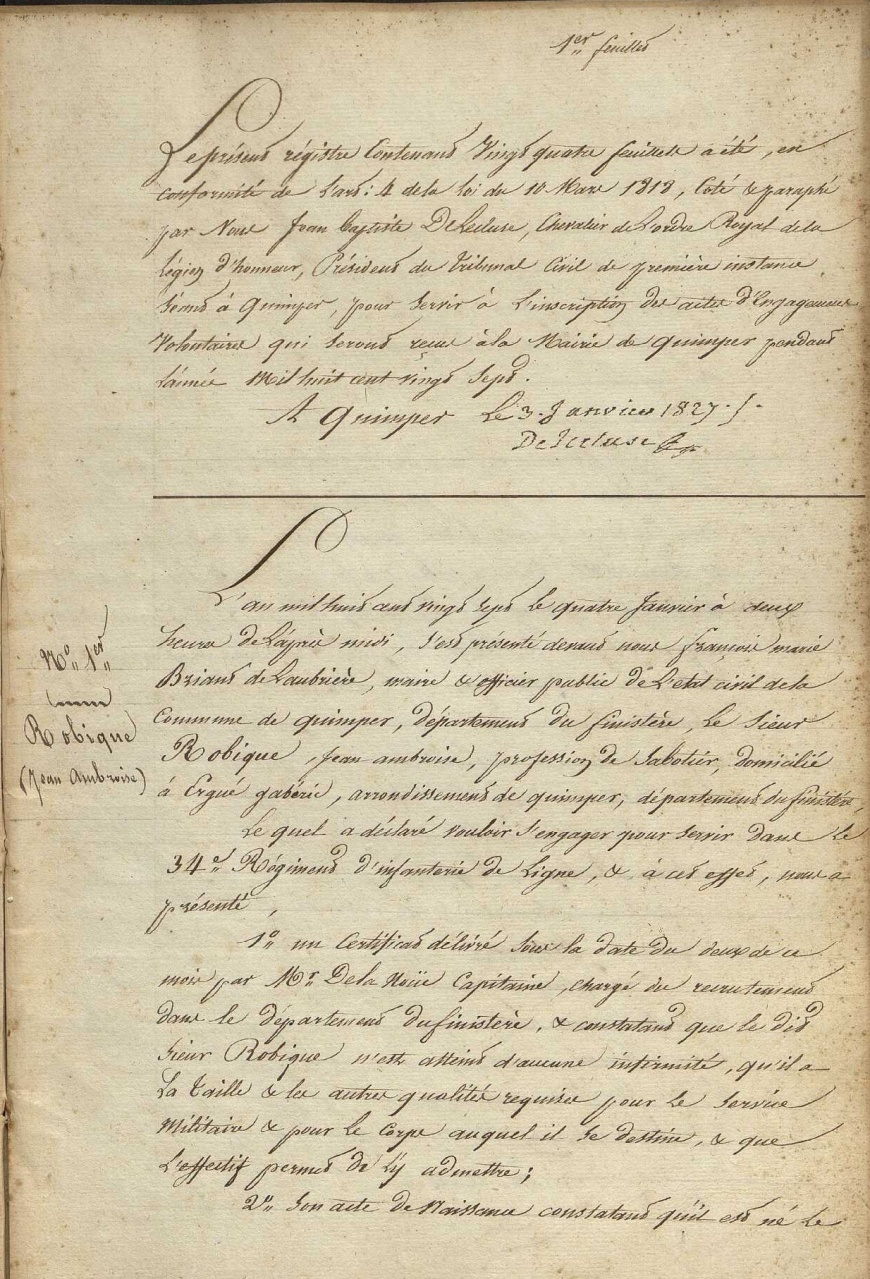 1er feuillet
Le présent régistre Contenant Vingt quatre feuillets a été, en
conformité de l'art: 4 de la loi du 10 Mars 1818, Coté & paraphé
par Nous Jean Baptiste DeLecluse, Chevalier de L'ordre Royal de la
Légion d'honneur, Président du Tribunal Civil de première instance
séant à Quimper, pour servir à L'inscription des actes d'Engagemens
Volontaires qui seront reçus à la Mairie de Quimper pendant
L'année Mil huit cent vingt sept.
A Quimper Le 3. Janvier 1827.
DeLecluse
L'an mil huit cent vingt sept le quatre Janvier à deux
heures de L'après midi, s'est présenté devant nous françois marie
Briant de Laubrière, maire & officier public de L'etat civil de la
Commune de quimper, département du finistère, Le Sieur
N° 1er
Robique
(Jean Ambroise)
Robique, Jean ambroise, profession de Sabotier, domicilié
à Ergué gabéric, arrondissement de quimper, département du finistère,
Le quel a déclaré vouloir s'engager pour servir dans Le
34e Régiment d'infanterie de Ligne, & à cet effet, nous a
présenté,
1° un Certificat délivré sous la date du deux de ce
mois par Mr De la Noüe Capitaine, chargé du recrutement
dans le département du finistère, & constatant que le dit
Sieur Robique n'est atteint d'aucune infirmité, qu'il a
La Taille & les autres qualités requises pour Le Service
Militaire & pour Le Corps auquel il se destine, & que
L'effectif permet de L'y admettre;
2° Son acte de Naissance constatant qu'il est né Le